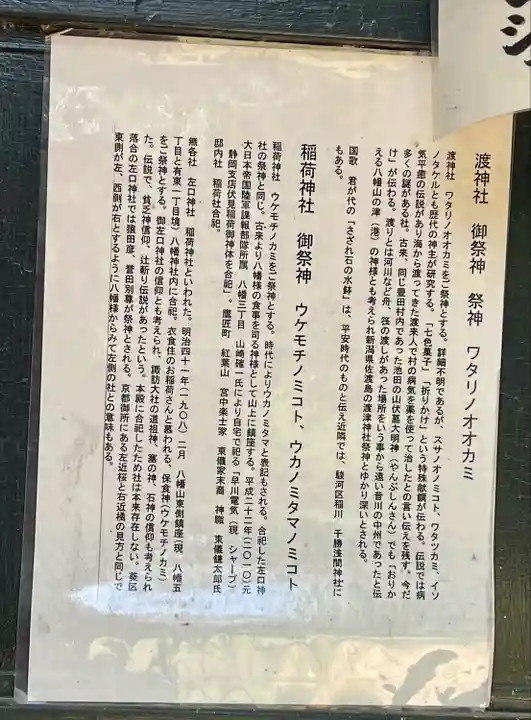 渡神社　御祭神　祭神　ワタリノオオカミ
渡神社　ワタリノオオカミをご祭神とする。詳細不明であるが、スサノオノミコト、ワタツカミ、イソ
ノタケルとも歴代の神主が研究する。「七色菓子」「折りかけ」という特殊献饌が伝わる。伝説では病
気平癒の伝説があり海から渡ってきた渡来人で村の病気を薬を使って治したとの言い伝えを残す。今だ
多くの謎がある社。古来、同じ豊田村内であった池田の山伏墓大明神（やんぶしんさん）でも「おりか
け」が伝わる。渡りとは河川など舟、筏の渡しがあった場所をいう事から遠い昔川の中州であったと伝
える八幡山の津（港）の神様とも考えられ新潟県佐渡島の渡津神社祭神とゆかり深いとされる。
国歌　君が代の「さざれ石の水鉢」は、平安時代のものと伝え近隣では、駿河区稲川　千勝浅間神社に
もある。
稲荷神社　御祭神　ウケモチノミコト、ウカノミタマノミコト
稲荷神社　ウケモチノカミをご祭神とする。時代によりウカノミタマと表記もされる。合祀した左口神
社の祭神と同じ。古来より八幡様の食事を司る神様として山上に鎮座する。平成二十二年（二〇一〇）元
大日本帝国陸軍諜報部隊所属　八幡三丁目　山崎確一氏により自宅で祀る「早川電気（現　シャープ）
静岡支店伏見稲荷御神体を合祀」。鷹匠町　紅葉山　宮中楽士家　東儀家末裔　神職　東儀鎌太郎氏
邸内社　稲荷社合祀。
無各社　左口神社　稲荷神社といわれた。明治四十一年（一九〇八）二月　八幡山東側鎮座（現　八幡五
丁目と有東一丁目境）八幡神社内に合祀。衣食住のお稲荷さんと慕われる。保食神（ウケモチノカミ）
をご祭神とする。御左口神社の信仰とも考えられ、諏訪大社の道祖神、塞の神、石神の信仰も考えられ
た。伝説で、貧乏神信仰、辻斬り伝説があったという。本殿に合祀したため社は本来存在しない。葵区
落合の左口神社では猿田彦、誉田別尊が祭神とされる。京都御所にある左近桜と右近橘の見方と同じで
東側が左、西側が右とするように八幡様からみて左側の社との意味もある。